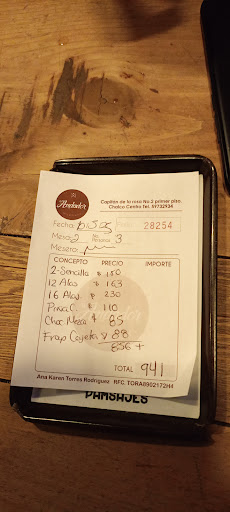 Andador
Capitán de la rosa No.3 primer piso,
Chalco Centro Tel. 59732934
Fecha:
28254
Mesa: 2 No. Personas 3
Mesero:
CONCEPTO PRECIO IMPORTE
2-Sencilla $ 150
12 Alas $ 163
16 Alas $ 230
$ 110
Choc Mesa $ 85
Frapp Cajeta $ 88
856 +
TOTAL 941
Ana Karen Torres Rodriguez RFC TORA8902172H4
PAMBAJES